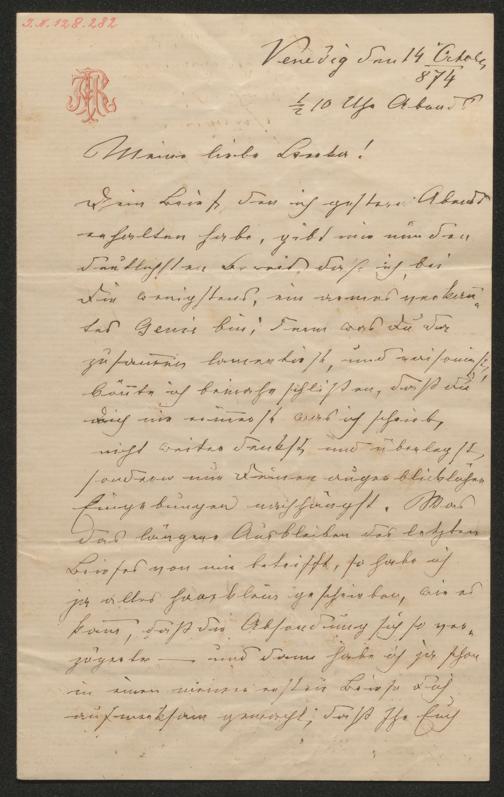 I.N. 128.282
Venedig den 14 October
874
½ 10 Uhr Abends
Meine liebe
Dein Brief, den ich gestern Abend
erhalten habe, gibt mir nun den
deutlichsten Beweis, daß ich, bei
Dir wenigstens, ein armes verkann„
tes Genie bin; denn was Du da
zusammen lamentirst, und raisonirst,
könnte ich beinahe schließen, daß Du
Dich nie erinnerst was ich schrieb,
nicht weiter denkst und überlegst,
sondern nur Deinen augenblicklichen
Eingebungen nachhängst. Was
das längere Ausbleiben des letzten
Briefes von mir betrifft, so habe ich
ja alles haarklein geschrieben, wie es
kam, daß die Absendung sich so ver„
zögerte — und dann habe ich ja schon
in einem meiner ersten Briefe Dich
aufmerksam gemacht, daß Ihr Euch